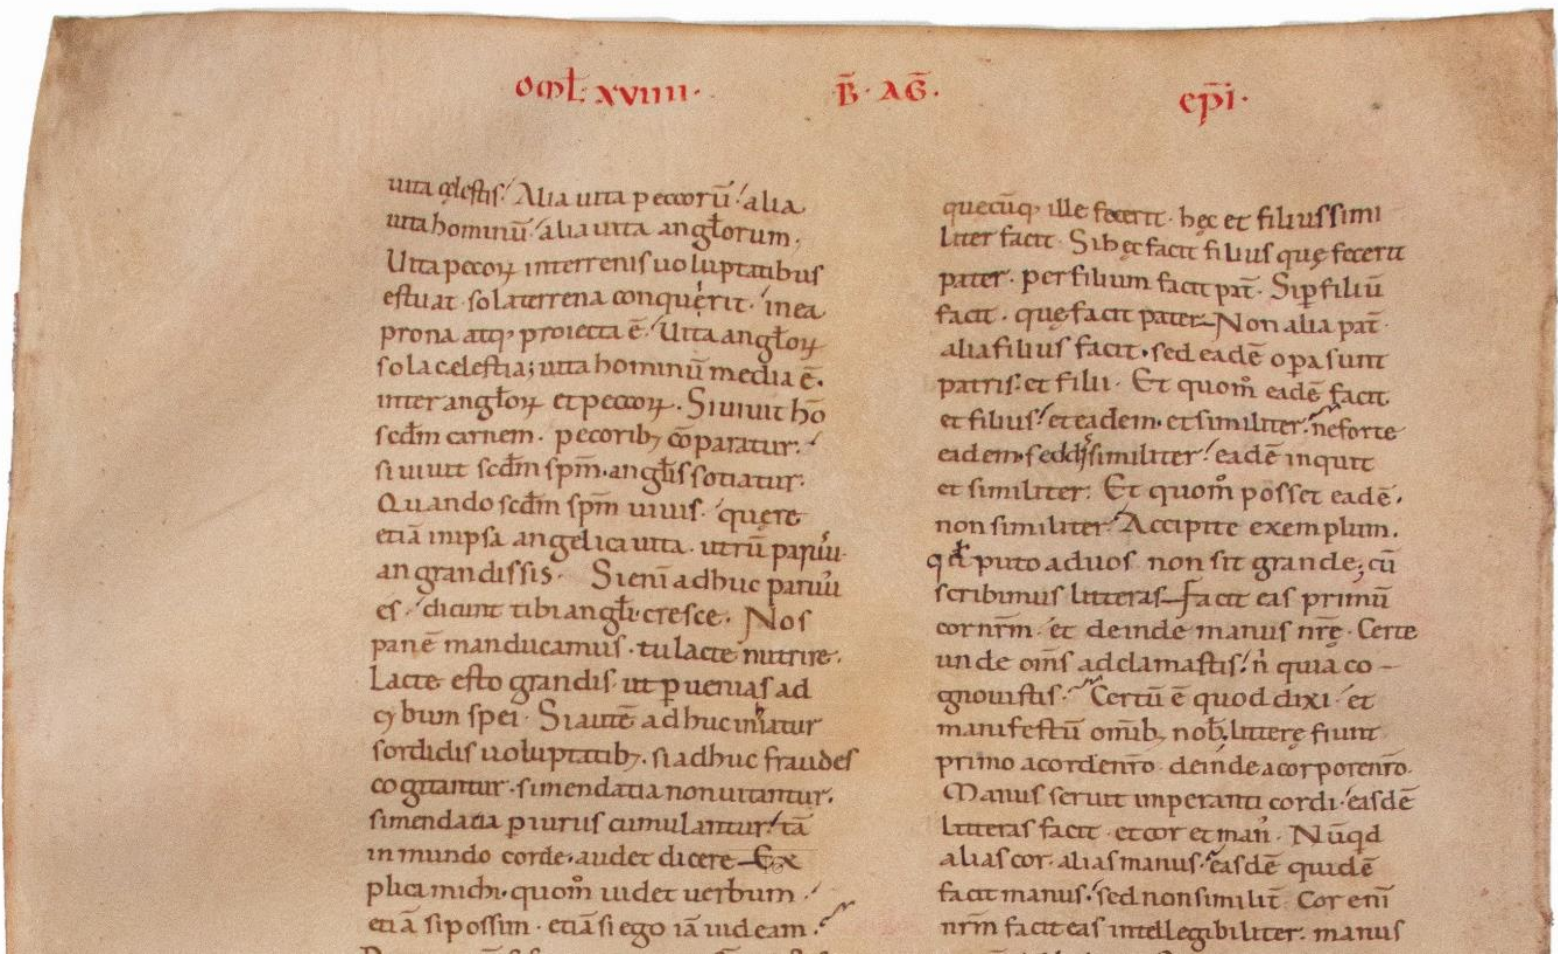 omł· xviiii· B̄· AḠ· ep̄i·
uita cęlestis· Alia uita pecorū· alia
uita hominū· alia uita angłorum·
Uita pecoꝝ in terrenis uoluptatibus
estuat· sola terrena conquęrit· in ea
prona atq; proiecta ē· Uita angłoꝝ
sola celestia; uita hominū media ē·
inter angłoꝝ et pecoꝝ· Si uiuit hō
scđm carnem· pecorib; cōparatur·
si uiuit scđm spm̄· angłis sotiatur·
Quando scđm spm̄ uiuis· quęre
etiā in ipsa angelica uita· utrū paruu
an grandis sis· Si eni adhuc paruu
es· dicunt tibi angłi· cresce· Nos
panē manducamus· tu lacte nutrire·
Lacte esto grandis· ut ꝑuenias ad
cybum spei· Si autē adhuc inhiatur
sordidis uoluptatib;· si adhuc fraudes
cogitantur· si mendatia non uitantur·
si mendatia ꝑiuriis cumulantur· tā
inmundo corde· audet dicere Ex
plica michi· quom̊ uidet uerbum·
etiā si possim· etiā si ego iā uideam·
quecūq; ille fecerit· hęc et filius simi
liter facit· Si hęc facit filius quę fecerit
pater· per filium facit pat̄· Si ꝑ filiū
facit· quę facit pater Non alia pat̄
alia filius facit· sed eadē oꝑa sunt
patris· et filii· Et quom̊ eadē facit
et filius· et eadem· et similiter· ne forte
eadem· sed dissimiliter· eadē inquit
et similiter· Et quom̊ posset eadē·
non similiter· Accipite exemplum·
qđ puto ad uos non sit grande; cū
scribimus litteras Facit eas primū
cor nrm̄· et deinde manus nrę̄· Certe
unde om̄s adclamastis· n̊ quia co-
gnouistis· Certū ē quod dixi· et
manifestū om̄ib; nob̄· litterę fiunt
primo a corde nr̄o· deinde a corpore nr̄o·
Manus seruit imperanti cordi· easdē
litteras facit· et cor et man̾· Nūqd
alias cor· alias manus· easdē quidē
facit manus· sed non similit̄· Cor eni
nrm̄ facit eas intellegibiliter· manus